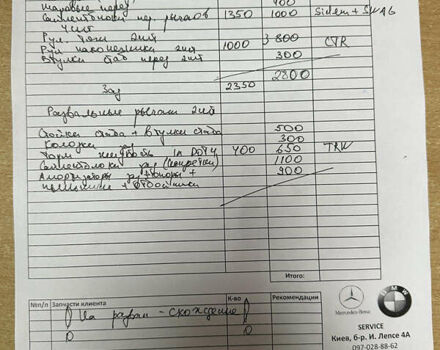 шаровые перед 400
Сайлентблоки пер. рычагов 1350 1000 Sidem + SWAG
4 шт
Рул. тяги 2шт 800
Рул наконечники 2шт 1000 CTR
Втулки стаб перед 2шт 300
2800
Зад 2350
Развальные рычаги 2шт
Стойки стаба + втулки стаба 500
Колодки зад 300
Торм жидкость 1л DOT4 400 650 TRW
Сайлентблоки зад 1100
Амортизаторы зад + опоры + 900
пыльники + отбойники
Итого:
№п/п Запчасти клиента К-во Рекомендации
! На развал - схождение !
Mercedes-Benz
BMW
SERVICE
Киев, б-р. И. Лепсе 4А
097-028-88-62